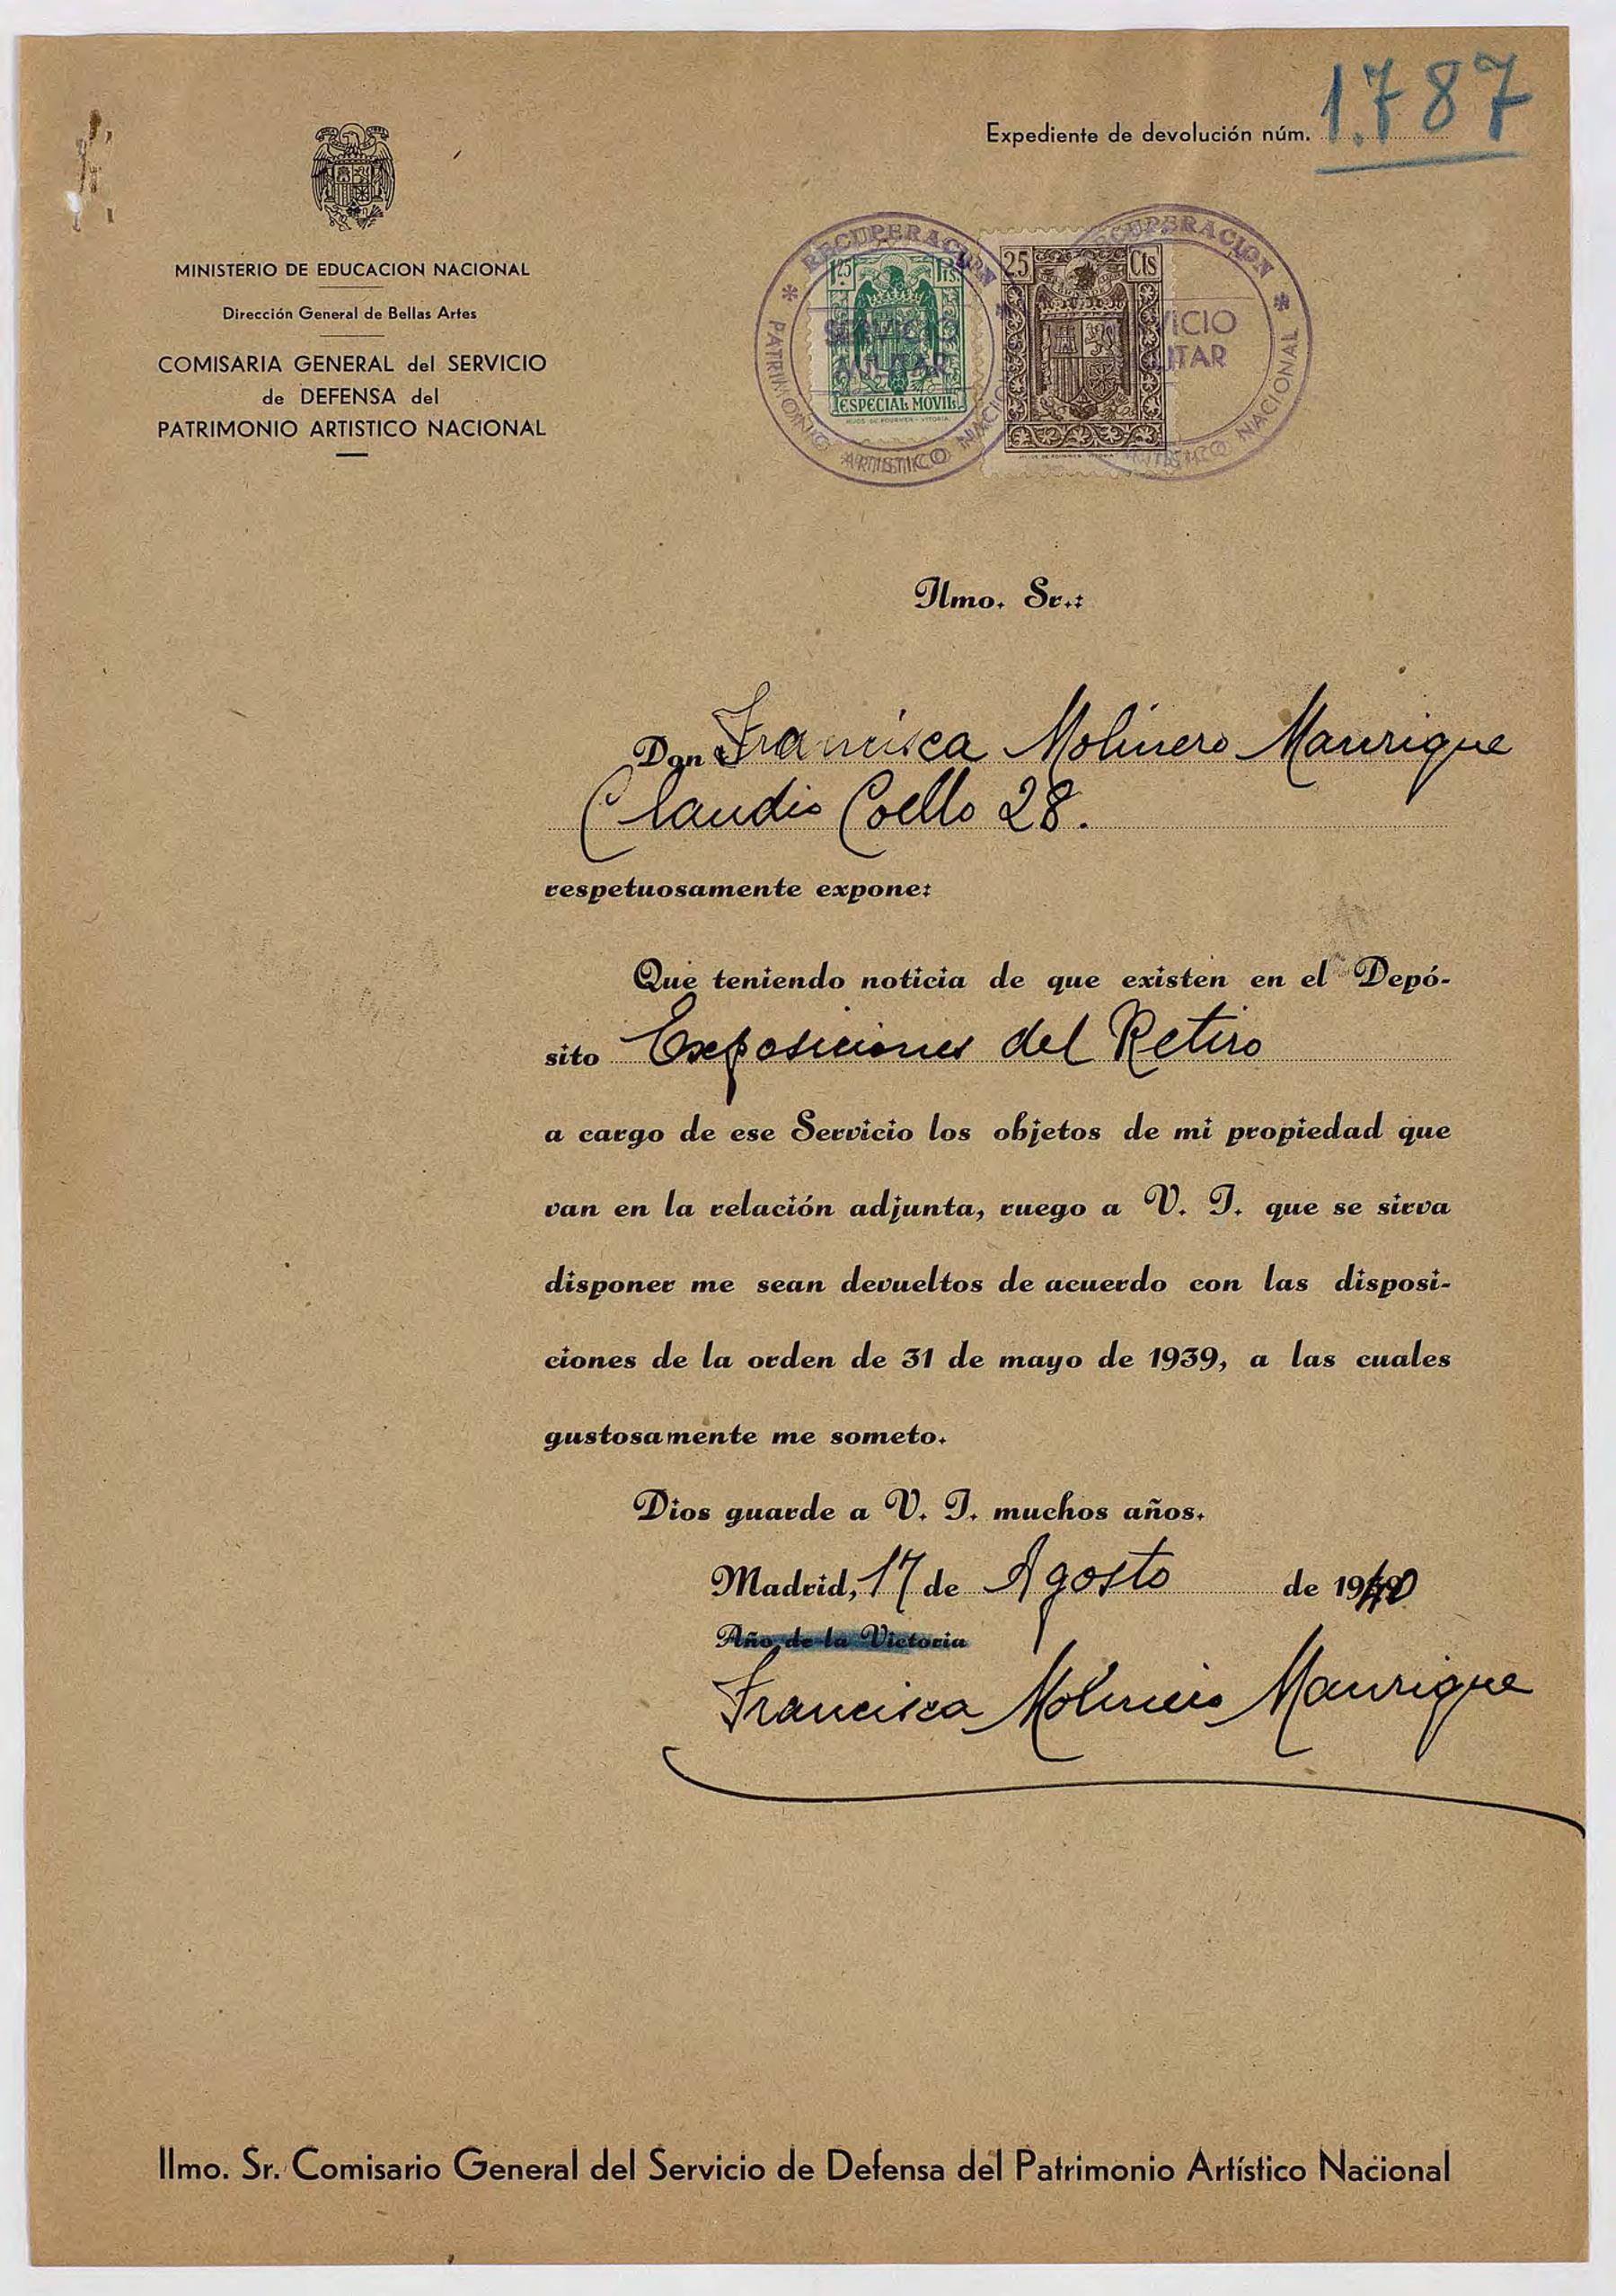 Expediente de devolución núm. 1.787
MINISTERIO DE EDUCACION NACIONAL
Dirección General de Bellas Artes
COMISARIA GENERAL del SERVICIO
de DEFENSA del
PATRIMONIO ARTISTICO NACIONAL
RECUPERACION
PATRIMONIO ARTISTICO NACIONAL
SERVICIO
MILITAR
1'25 Pts
ESPECIAL MOVIL
HIJOS DE FOURNIER - VITORIA
25 Cts
RECUPERACION
ARTISTICO NACIONAL
VICIO
LITAR
Ilmo. Sr.:
Don Francisca Molinero Manrique
Claudio Coello 28.
respetuosamente expone:
Que teniendo noticia de que existen en el Depó-
sito Exposiciones del Retiro
a cargo de ese Servicio los objetos de mi propiedad que
van en la relación adjunta, ruego a V. I. que se sirva
disponer me sean devueltos de acuerdo con las disposi-
ciones de la orden de 31 de mayo de 1939, a las cuales
gustosamente me someto.
Dios guarde a V. I. muchos años.
Madrid, 17 de Agosto de 1940
Año de la Victoria
Francisca Molinero Manrique
Ilmo. Sr. Comisario General del Servicio de Defensa del Patrimonio Artístico Nacional